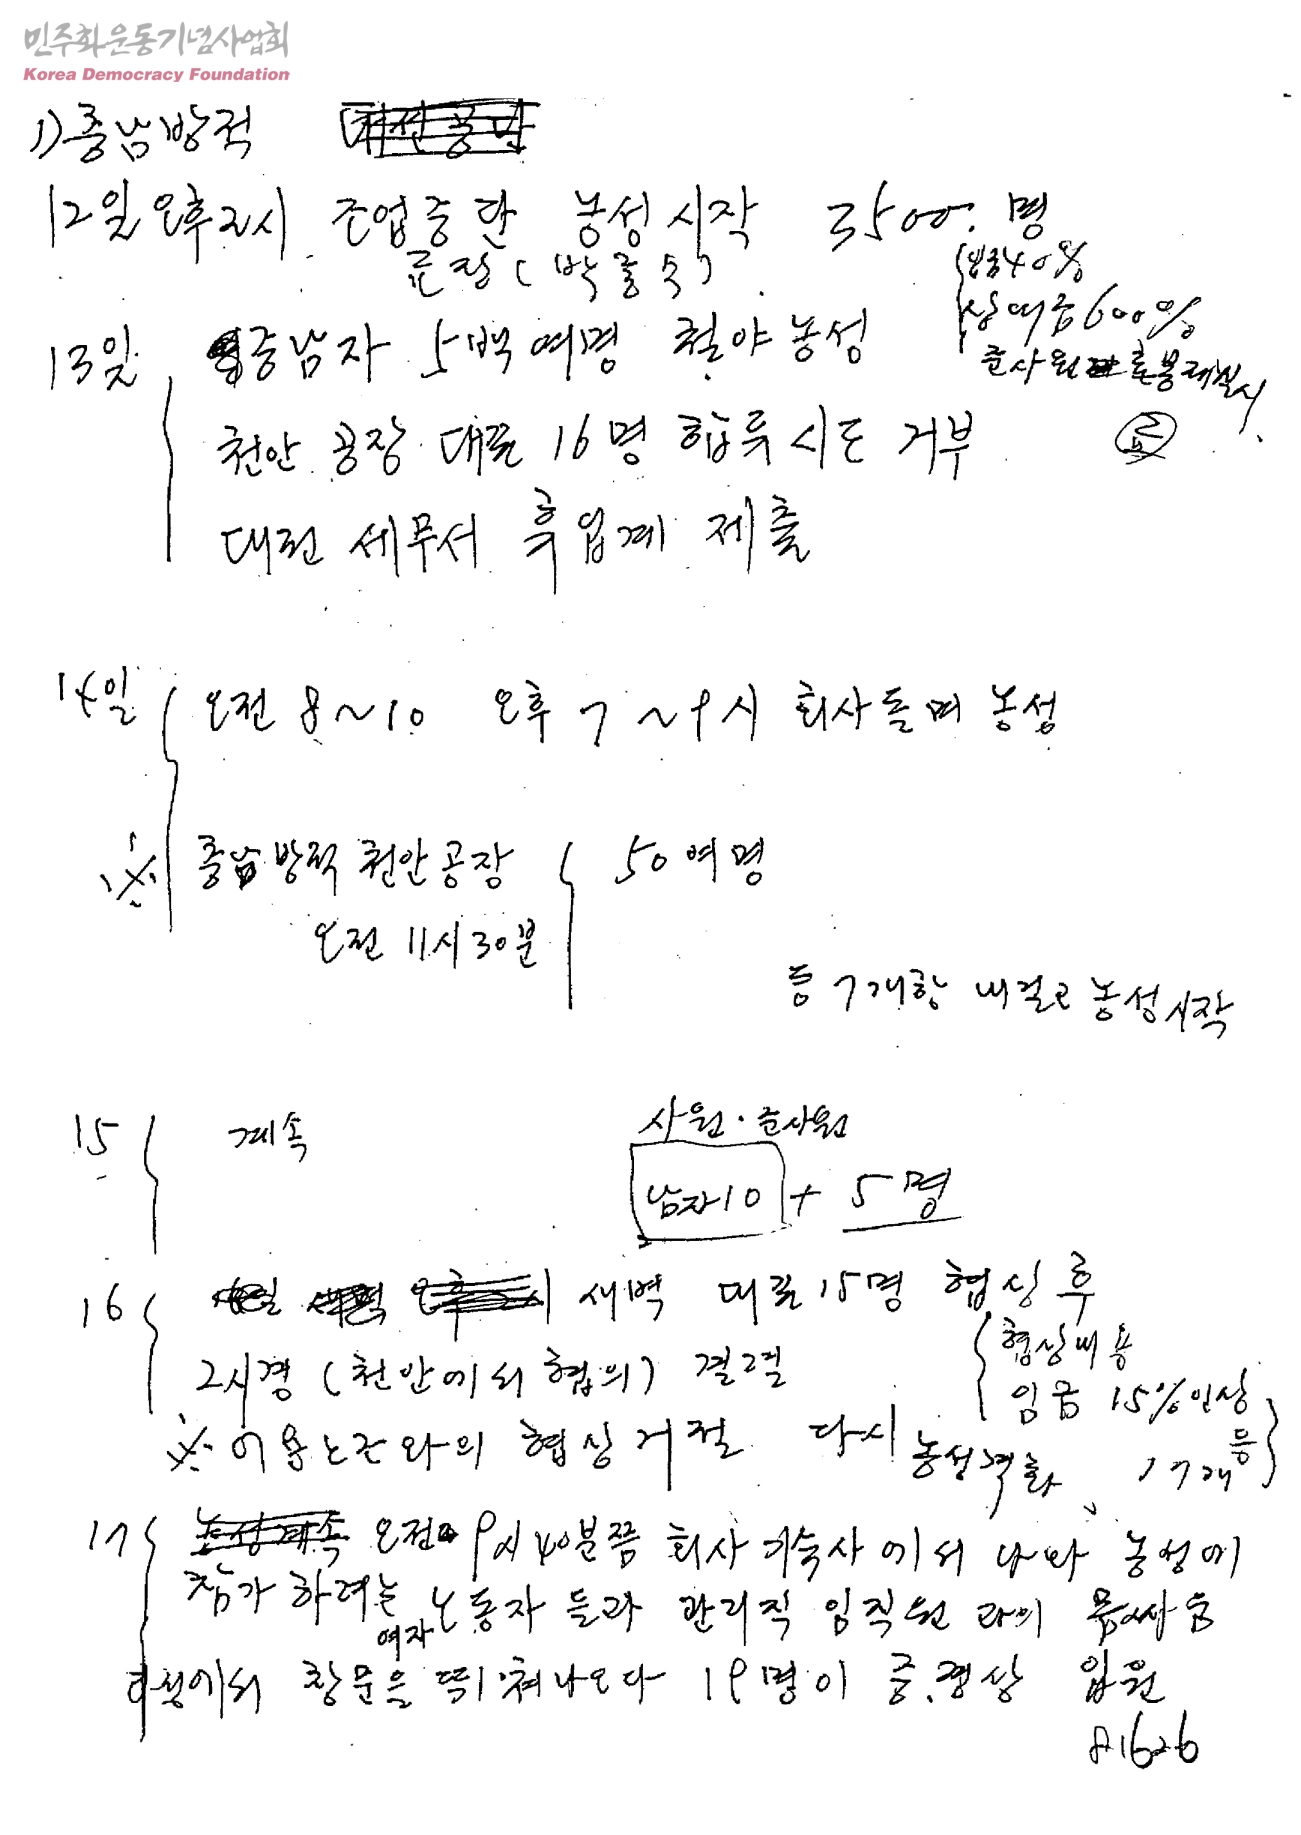 민주화운동기념사업회
Korea Democracy Foundation
1) 충남방적
12일 오후2시 조업중단 농성시작 3500명
임금40%
상여금600%
13일 충남자 5백여명 철야농성
천안 공장 대표 16명 합류시도 거부
대전 세무서 휴업계 제출
14일 오전 8~10 오후 7~9시 회사돌며 농성
※ 충남방적 천안공장 50여명
오전 11시30분
등 7개항 내걸고 농성시작
15 계속
사원·준사원
남자10 + 5명
16 새벽 대표 15명 협상후
2시경 (천안에서 협의) 결렬
협상내용
임금 15%인상
등 17개
※ 어용노조와의 협상거절 다시 농성격화
17 오전 9시40분쯤 회사 기숙사에서 나와 농성에
참가 하려는 여자 노동자 들과 관리직 임직원 과의 몸싸움
과정에서 창문을 뛰쳐나오다 19명이 중.경상 입원
81626